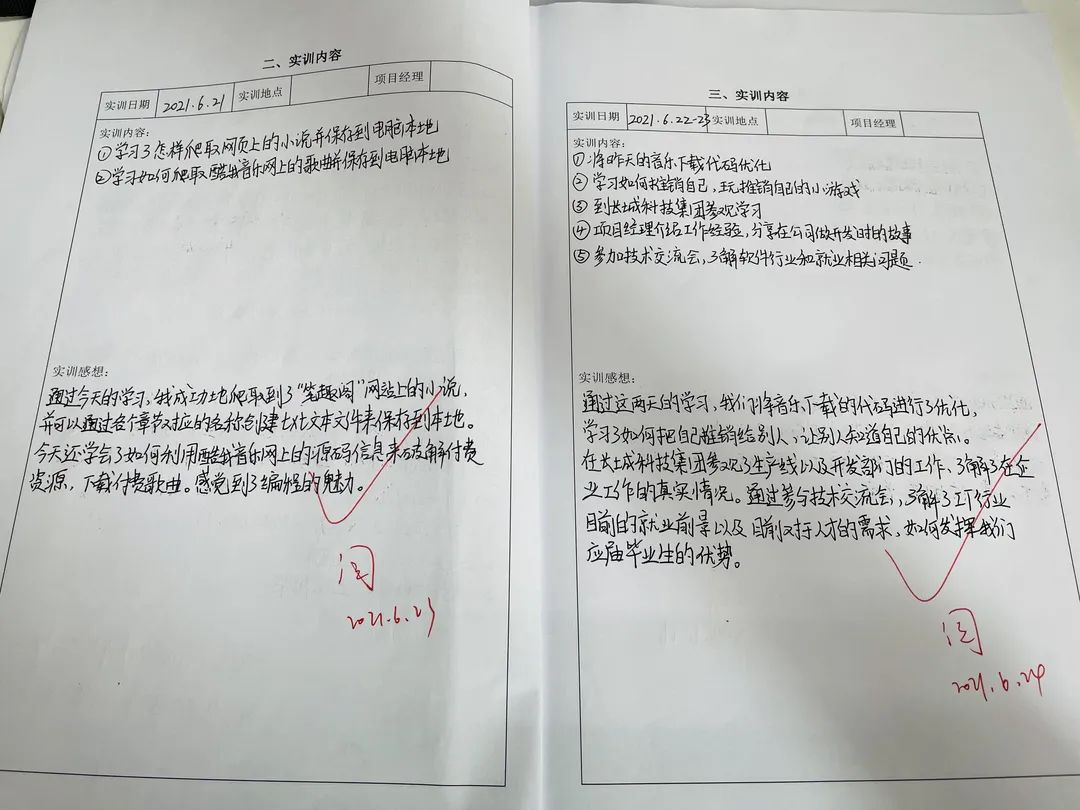 二、实训内容
实训日期 2021.6.21 实训地点 项目经理
实训内容:
①学习了怎样爬取网页上的小说并保存到电脑本地
②学习如何爬取酷我音乐网上的歌曲并保存到电脑本地
实训感想:
通过今天的学习,我成功地爬取到了“笔趣阁”网站上的小说,
并可以通过各个章节对应的名称创建七化文本文件来保存到本地。
今天还学会了如何利用酷我音乐网上的源码信息来破解付费
资源,下载付费歌曲。感觉到了编程的魅力。
闫
2021.6.23
三、实训内容
实训日期 2021.6.22-23 实训地点 项目经理
实训内容:
①将昨天的音乐下载代码优化
②学习如何推销自己,玩推销自己的小游戏
③到长城科技集团参观学习
④项目经理介绍工作经验,分享在公司做开发时的故事
⑤参加技术交流会,了解软件行业和就业相关问题.
实训感想:
通过这两天的学习,我们对将音乐下载的代码进行了优化,
学习了如何把自己推销给别人,让别人知道自己的优点。
在长城科技集团参观了生产线以及开发部门的工作、了解了在企
业工作的真实情况。通过参与技术交流会,了解了IT行业
目前的就业前景以及目前对于人才的需求,如何发挥我们
应届毕业生的优势。
闫
2021.6.24